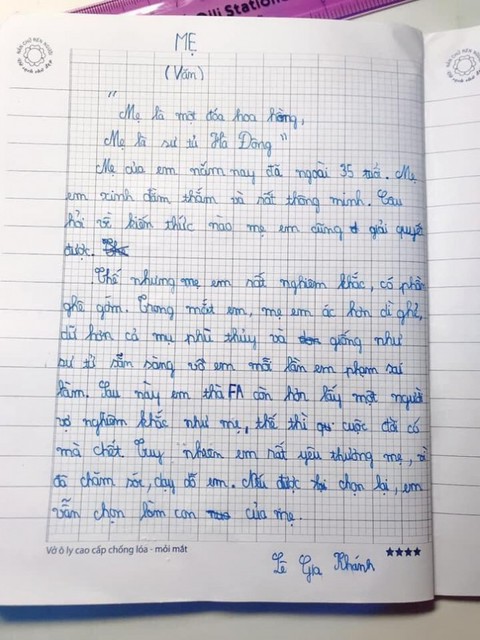 Olli Station
NÂN CHỮ NÉT NGƯỜI
MẸ
(Văn)
"Mẹ là một đóa hoa hồng,
Mẹ là sư tử Hà Đông"
Mẹ của em năm nay đã ngoài 35 tuổi. Mẹ
em xinh đằm thắm và rất thông minh. Câu
hỏi về kiến thức nào mẹ em cũng giải quyết
được.
Thế nhưng mẹ em rất nghiêm khắc, có phần
ghê gớm. Trong mắt em, mẹ em ác hơn dì ghẻ,
dữ hơn cả mụ phù thủy và giống như
sư tử sẵn sàng vồ em mỗi lần em phạm sai
lầm. Sau này em thà FA còn hơn lấy một người
vợ nghiêm khắc như mẹ, thế thì cuộc đời có
mà chết. Tuy nhiên em rất yêu thương mẹ, vì
đã chăm sóc, dạy dỗ em. Nếu được chọn lại, em
vẫn chọn làm con của mẹ.
Vở ô ly cao cấp chống lóa - mỏi mắt
Lê Gia Khánh